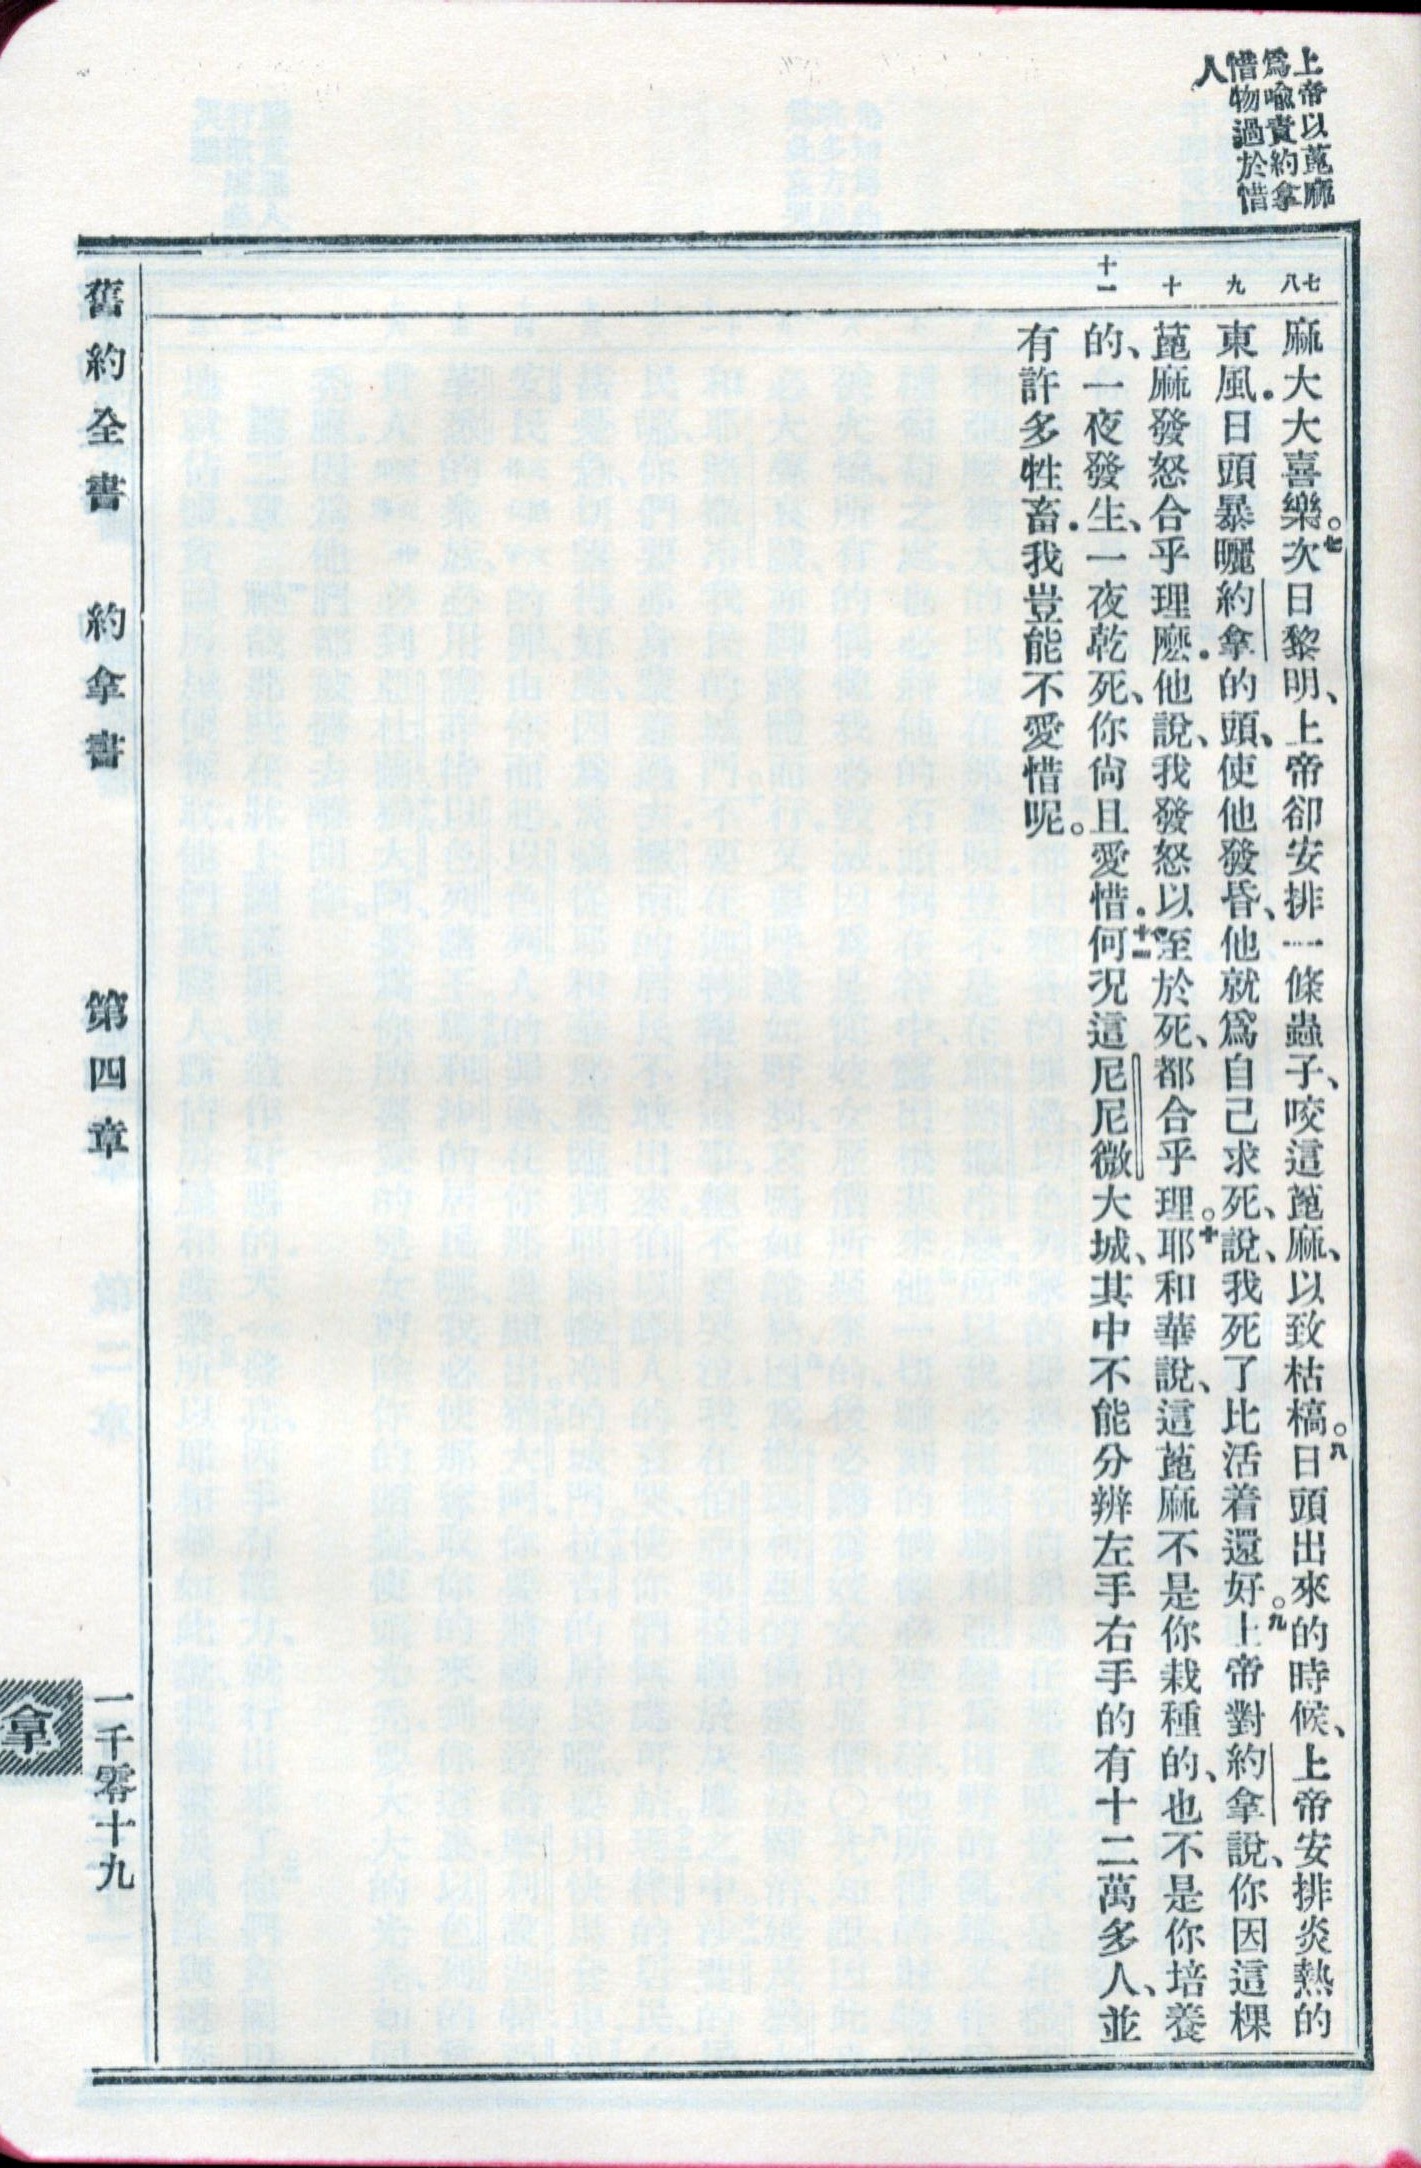 上帝以蓖麻
爲喻責約拿
惜物過於惜
人
七
八
九
十
十一
麻大大喜樂。七次日黎明、上帝卻安排一條蟲子、咬這蓖麻、以致枯槁。八日頭出來的時候、上帝安排炎熱的
東風．日頭暴曬約拿的頭、使他發昏、他就爲自己求死、說、我死了比活着還好。九上帝對約拿說、你因這棵
蓖麻發怒合乎理麽．他說、我發怒以至於死、都合乎理。十耶和華說、這蓖麻不是你栽種的、也不是你培養
的、一夜發生、一夜乾死、你尙且愛惜．十一何況這尼尼微大城、其中不能分辨左手右手的有十二萬多人、並
有許多牲畜．我豈能不愛惜呢。
舊約全書 約拿書 第四章 一千零十九
拿